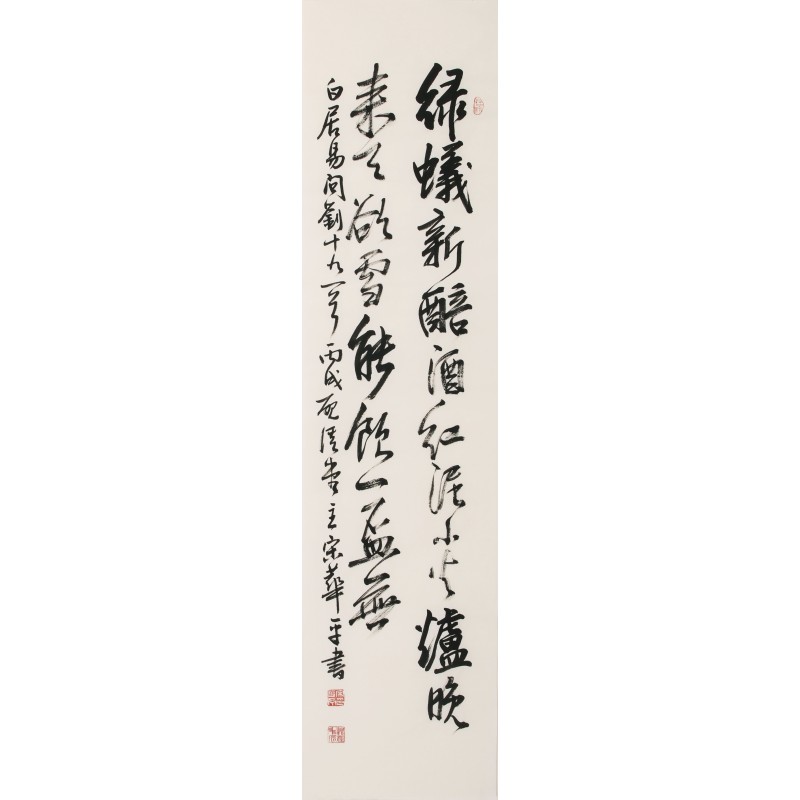 緑蟻新醅酒紅泥小火爐晚
来天欲雪能飲一盃無
白居易問劉十九一首丙戌硯清堂主宋華平書